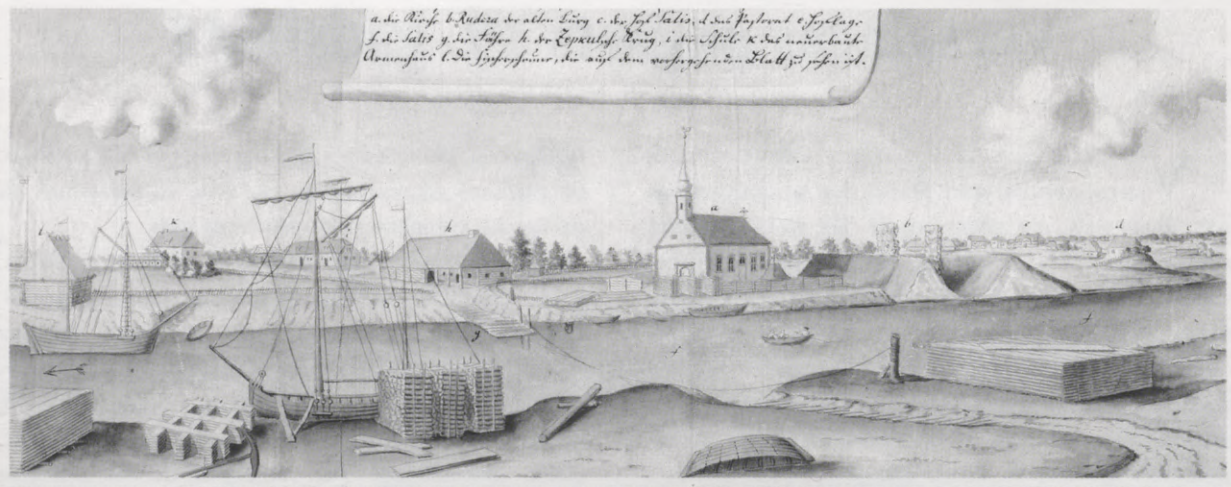 a. die Kirche b. Rudera der alten Burg c. der Hof Salis, d das Pastorat e. Hoflage
f. die Salis g. die Fähre h. der Krug, i die Schule k das neuerbaute
Armenhaus l. die, die auf dem vorhergehenden Blatt zu sehen ist.
l
k
h
a
b
c
d
e
g
f
f